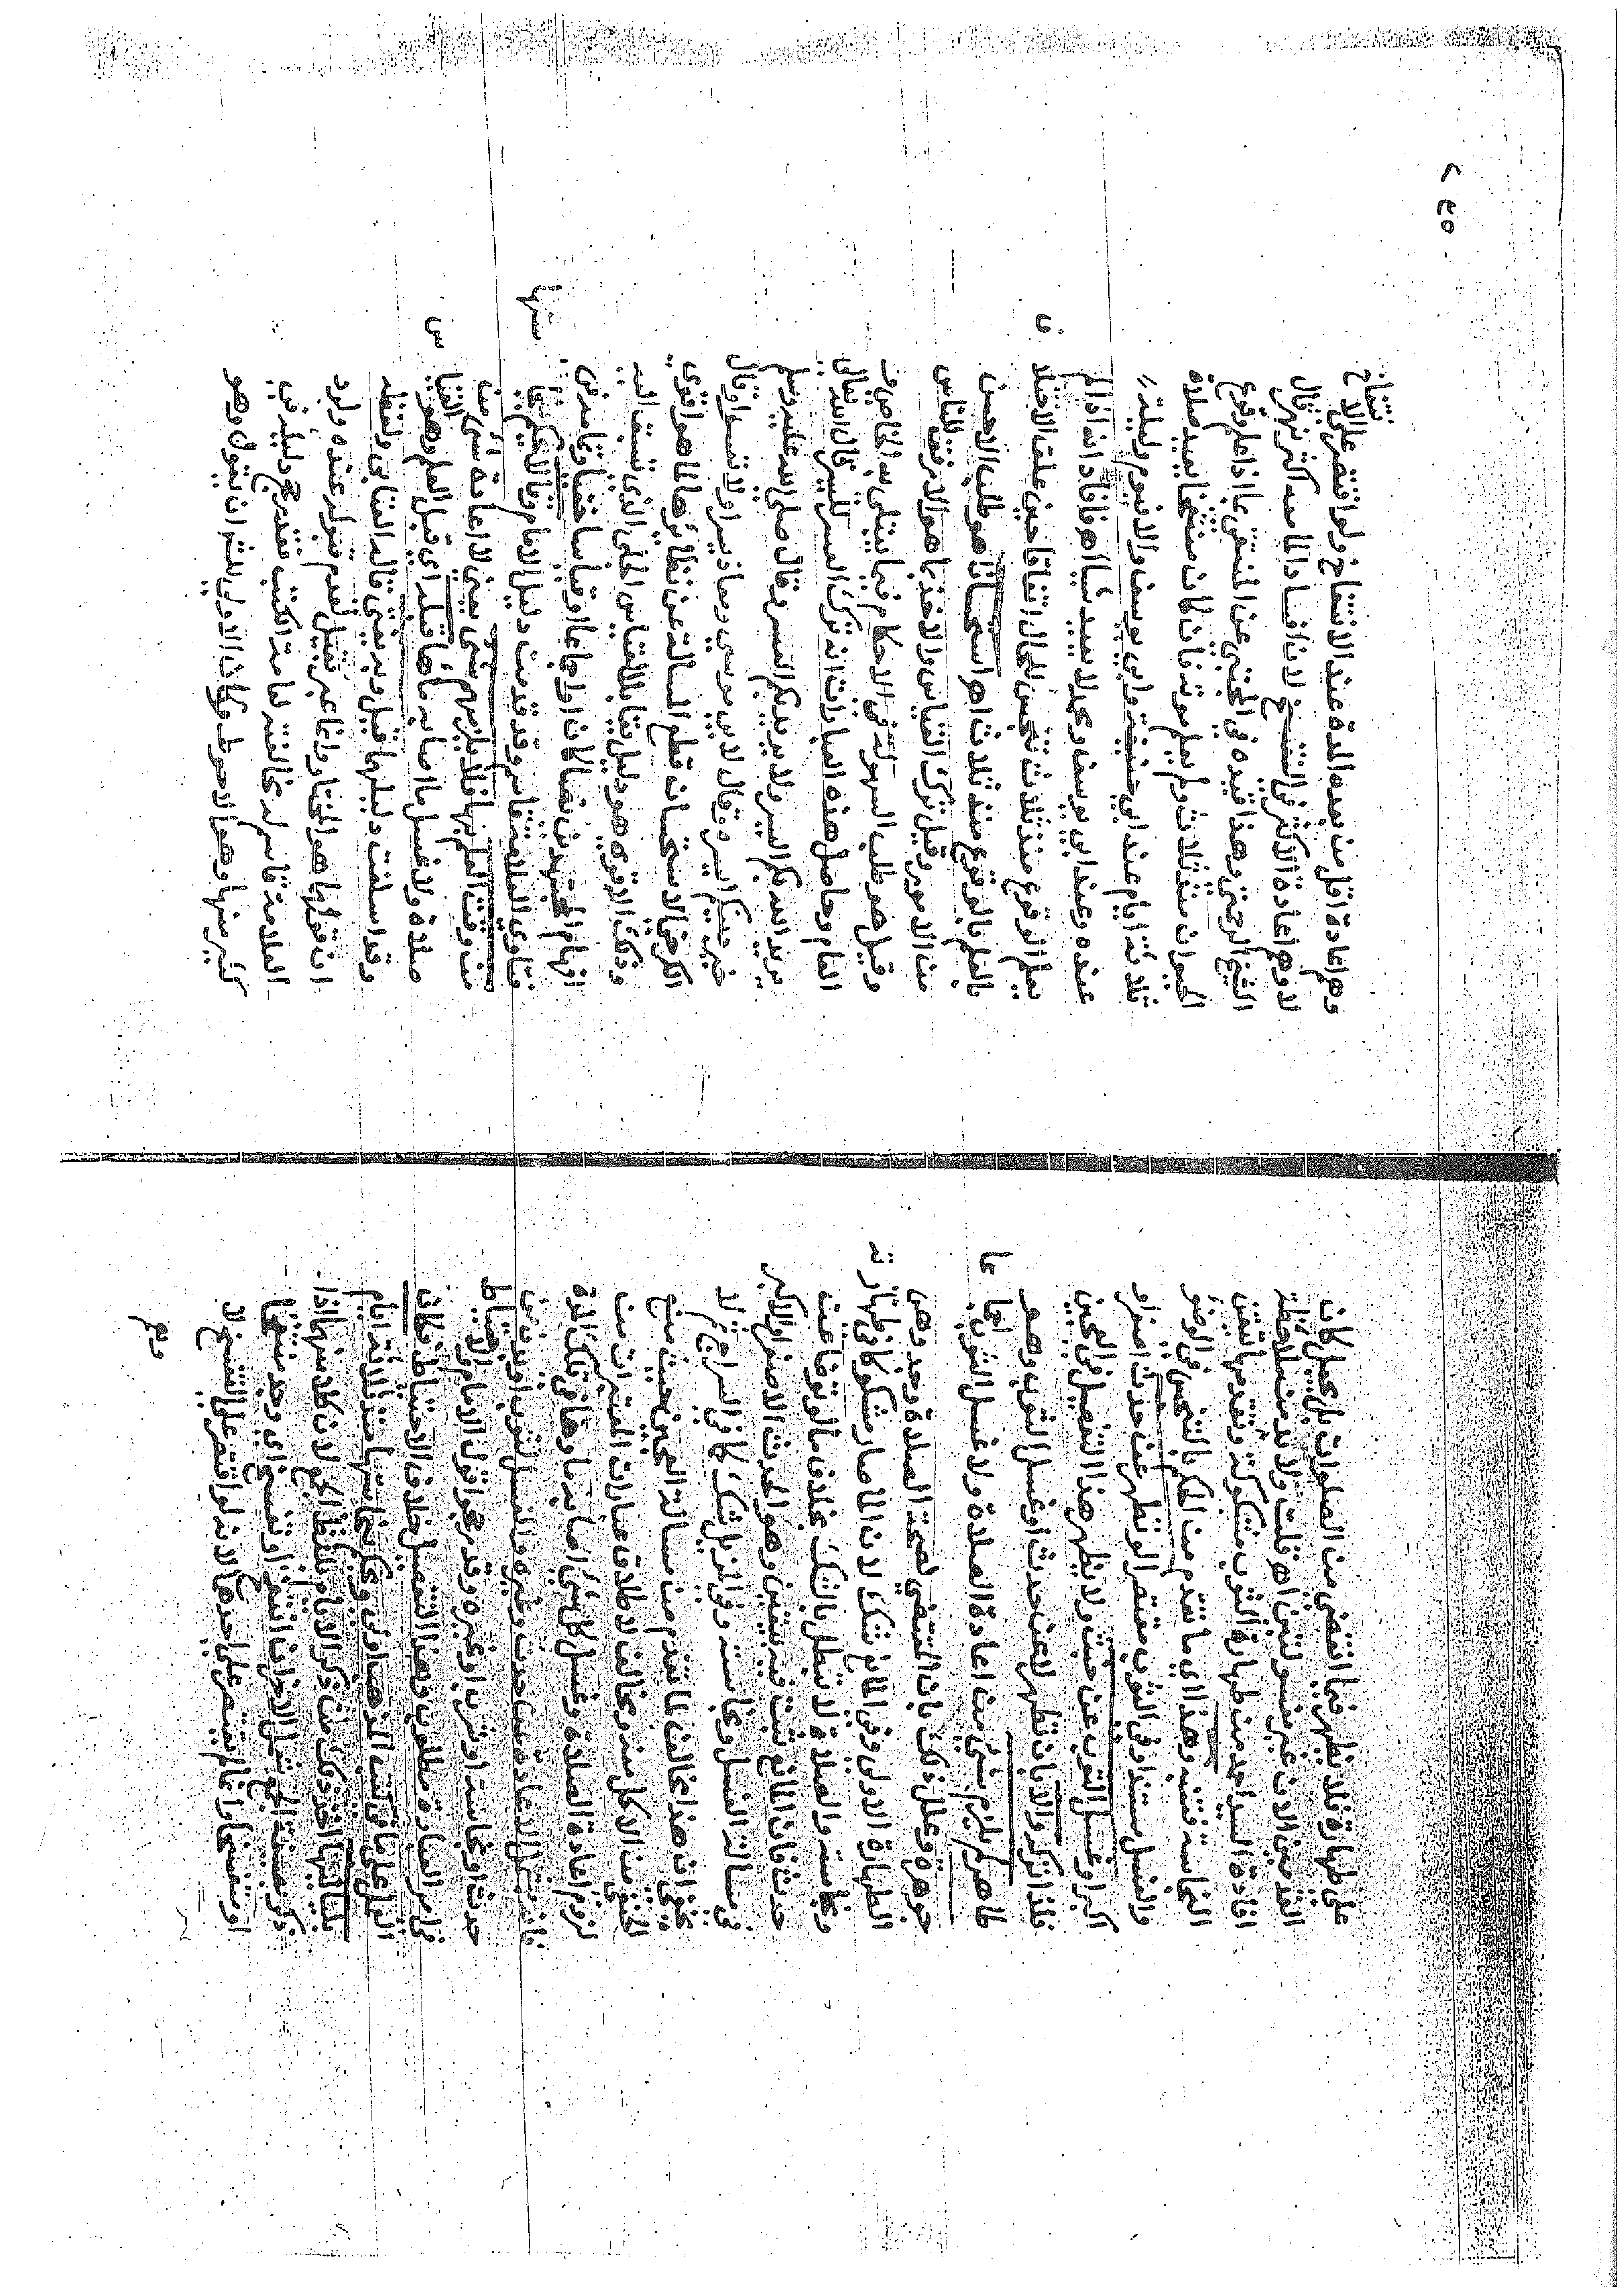 علي طهارة فلا يظهر فيما انقضى من الصلوات بل يحمل كان
المقدمتين الاذن غير مغسولتين اهـ قلت ولا بد من ملاحظة
افادة السيد احمد من طهارة الثوب مشكوكة وتقدمها اليقين
النجاسة فتنبه وهذا اي ما تقدم من الحكم بالتنجس في الوضو
والغسل مستندا وفي الثوب مقتصرا لو تطهر عن حدث اصغر او
اكبر او غسل الثوب عن خبث ولا يظهر هذا التفصيل في العجين
فلذا تركه والا بان تطهر لا عن حدث او غسل الثوب وهو
طاهر لم يلزم شئ من اعادة الصلاة ولا غسل الثوب اجماعا
جوهرة وعلل ذلك بان المقتضي لصحة الصلاة وجد وهي
الطهارة الاولى وفي المانع شك لان الماء صار مشكوكا في طهارته
ونجاسته والصلاة لا تبطل بالشك بخلاف ما لو توضا عن
حدث فان المانع ثبت فيه بيقين وهو الحدث الاصغر او الاكبر
في مسالة الغسل ونجاسته وفي المزيل شك كما في السراج ثم لا
يخفى ان هذا مخالف لما تقدم من مسالة العجين بحيث منع
الحنفي من الاكل منه ومخالف لاطلاق عبارات المعتبرات من
لزوم اعادة الصلاة وغسل كل شئ اصابه ماؤها في تلك المدة
فانه شمل الاعادة من حدث وغيره والغسل لثوب افيد من
حدث او نجاسة او شرب او غيره وقد رجحوا قول الامام والاحتياط
في امر العبادة مطلوب وهذا التفصيل خلاف الاحتياط فكان
العمل على ما في كتب المذهب اولى ويحكم بنجاستها منذ ثلاثة ايام
بلياليها اخذ ذلك من ذكر الايام بلفظ الجمع لان كلا منهما اذا
ذكر بصيغة الجمع شمل الاخر ان انتفخ او تفسخ اي وجد منتفخا
او متفسخا وانما لم يقتصر على احدهما لانه لو اقتصر على التفسخ لا
وهم
٢٤٥
وهم اعادة اقل من بعده المدة عند الانتفاخ ولو اقتصر على الانتفاخ
لاوهم اعادة الاكثر في التفسخ لان افساد الماء معه اكثر نهر قال
الشيخ الرحمتي وهذا قيده في المجتبى عن المنتقى بما اذا علم وقوع
الحيوان منذ ثلاث ولم يعلم موته فان كان منتفخا يعيد صلاة
ثلاثة ايام عند ابي حنيفة وابي يوسف والا فيوم وليلة
عنده وعند ابي يوسف ومحمد لا يعيد شيأ اهـ فافاد انه اذا لم
يعلم الوقوع منذ ثلاث تنجس للحال اتفاقا حين علقه الاختلاف
بالعلم بالوقوع منذ ثلاث اهـ استحسانا هو طلب الاحسن
من الامور وقيل ترك القياس والاخذ بما هو الارفق للناس
وقيل هو طلب السهولة في الاحكام فيما يبتلى به الخاص و
العام وحاصل هذه العبارات انه ترك العسر لليسر قال الله تعالى
يريد الله بكم اليسر ولا يريد بكم العسر وقال صلى الله عليه وسلم
خير دينكم ايسره وقال لابي موسى ومعاذ يسرا ولا تعسرا وقال
الكرخي الاستحسان قطع المسالة عن نظائرها لما هو اقوى
وذلك الاقوى هو دليل يقابل القياس الجلي الذي تسبق اليه
افهام المجتهدين نصا كان او اجماعا او قياسا خفيا وتمامه في
فتاوى العلامة قاسم وقد قدمت دليل الامام وقالا يحكم بنجاستها
من وقت العلم بها فلا يلزمهم شئ يعني لا اعادة شئ من
صلاة ولا غسل ما اصابه ماؤها قبله اي قبل العلم وهو القياس
وقد اسلفت دليلهما قيل وبه يفتى قاله العتابي ولفظه
ان قولهما هو المختار وانما عبر بقيل لعدم قبوله عنده ولرد
العلامة قاسم له بمخالفته لعامة الكتب فقد رجح دليله في
كثير منها وهو الاحوط وكان الاولى بمثله ان يقول وهو